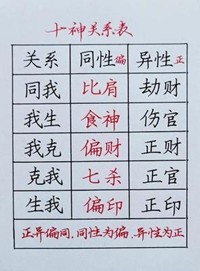 十神关系表
关系 同性偏 异性正
同我 比肩 劫财
我生 食神 伤官
我克 偏财 正财
克我 七杀 正官
生我 偏印 正印
正异偏同,同性为偏,异性为正